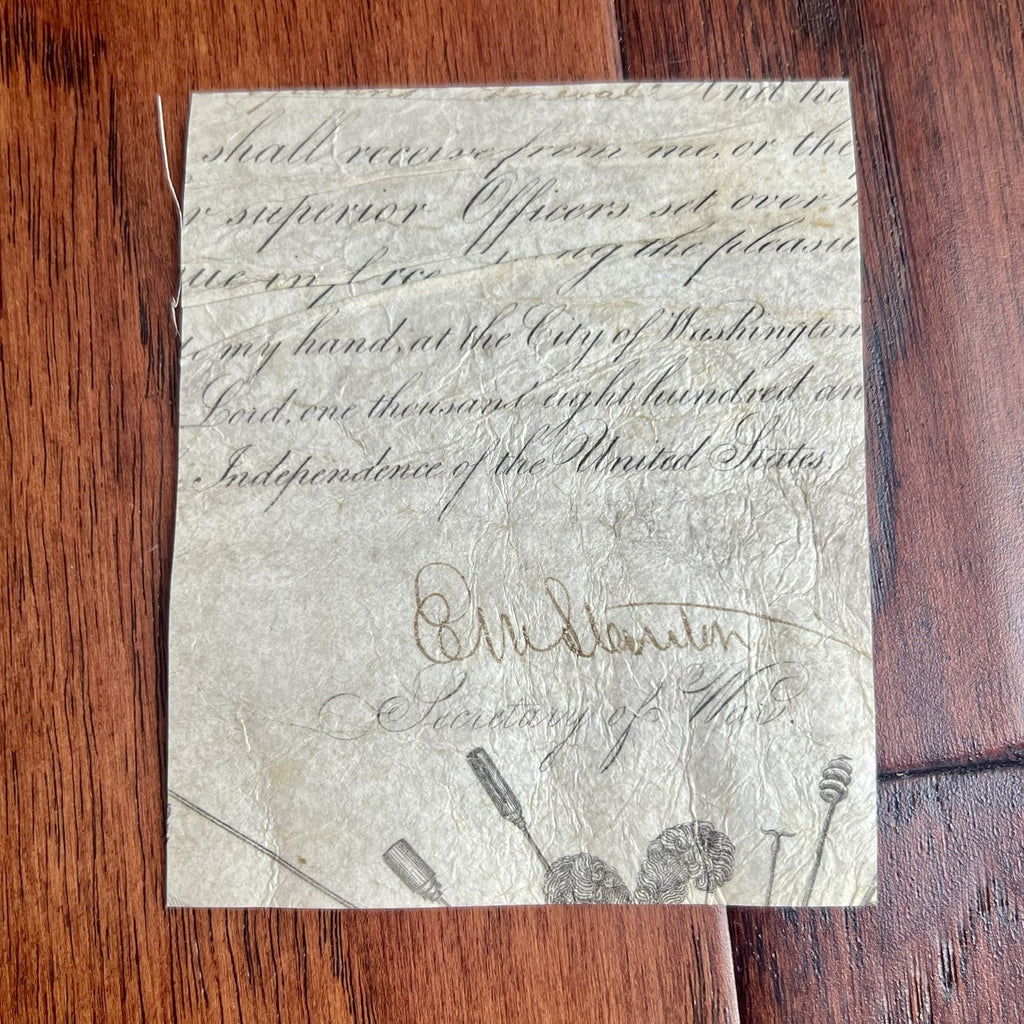 General And he
shall receive from me, or the
r superior Officers set over h
ue in force ng the pleasu
to my hand, at the City of Washington
Lord, one thousand eight hundred an
Independence of the United States.
E M Stanton
Secretary of War.